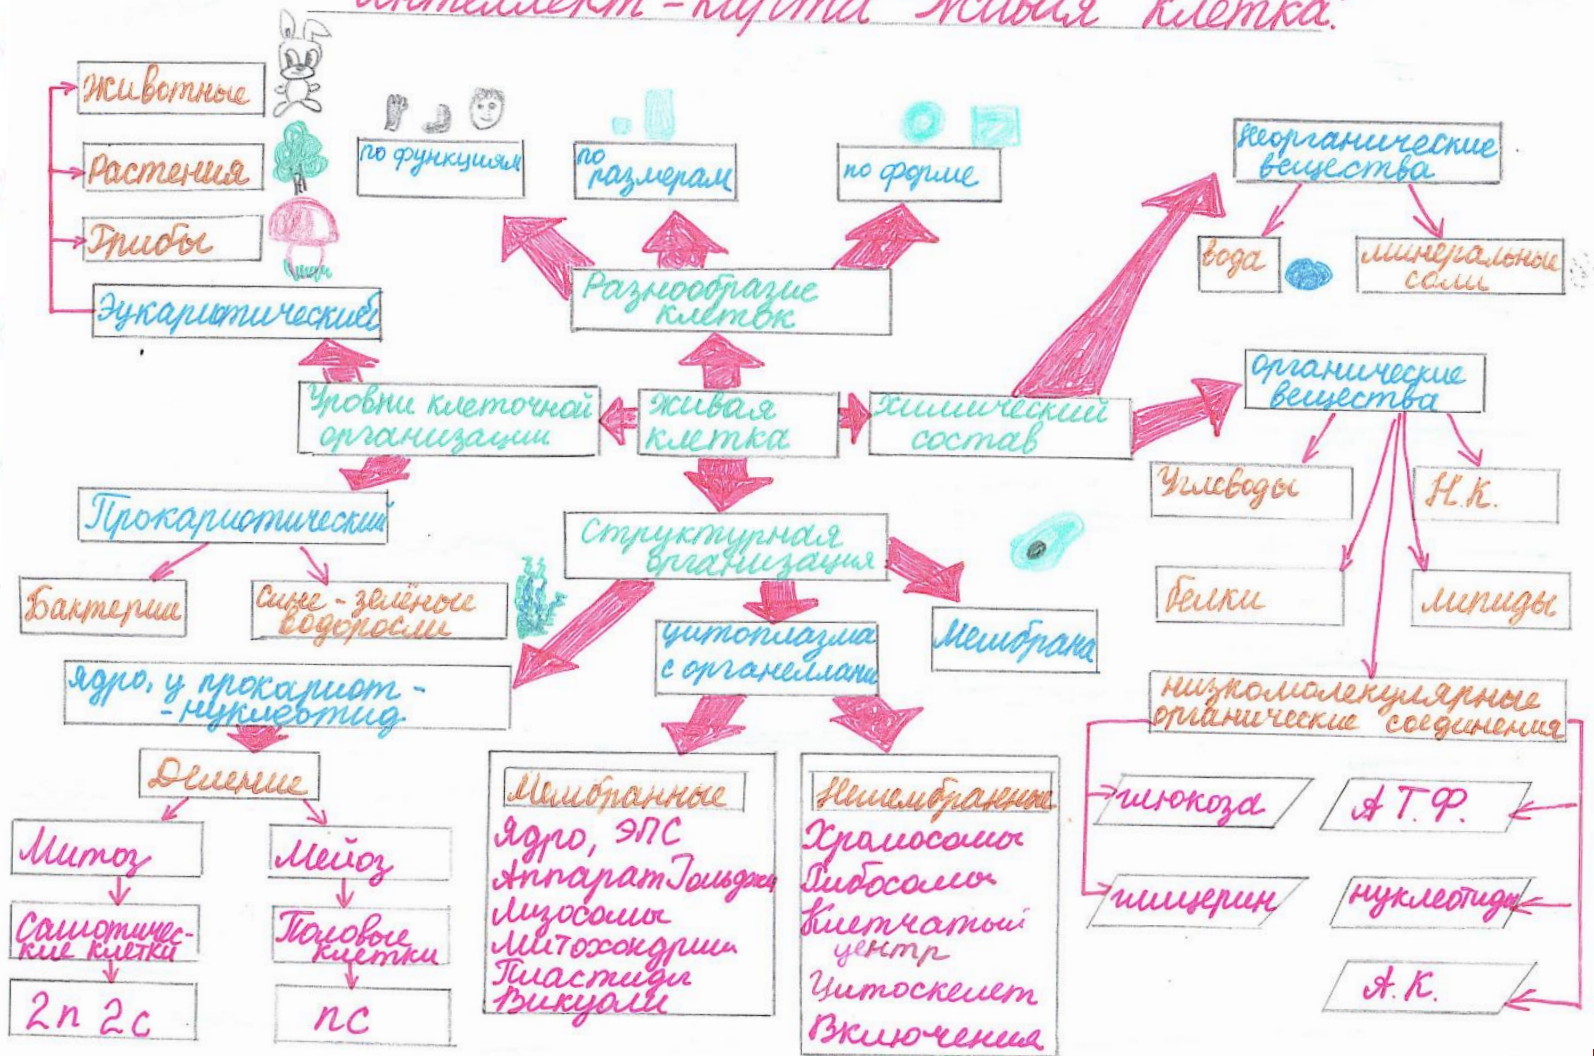 Интеллект-карта "Живая клетка."
Животные
Растения
Грибы
Эукариотический
по функциям
по
размерам
по форме
Разнообразие
клеток
неорганические
вещества
вода
минеральные
соли
Уровни клеточной
организации
живая
клетка
химический
состав
органические
вещества
Углеводы
Н.К.
белки
липиды
низкомолекулярные
органические соединения
глюкоза
А Т.Ф.
глицерин
нуклеотиды
А.К.
Прокариотический
Бактерии
сине-зелёные
водоросли
Структурная
организация
цитоплазма
с органеллами
Мембрана
ядро, у прокариот -
- нуклеотид
Деление
Митоз
Мейоз
Самотичес-
кие клетки
Половые
клетки
2n 2c
nc
Мембранные
Ядро, ЭПС
Аппарат Гольджи
Лизосомы
Митохондрии
Пластиды
Викуоли
Немембранные
Хромосомы
Рибосомы
Клетчатый
центр
Цитоскелет
Включения